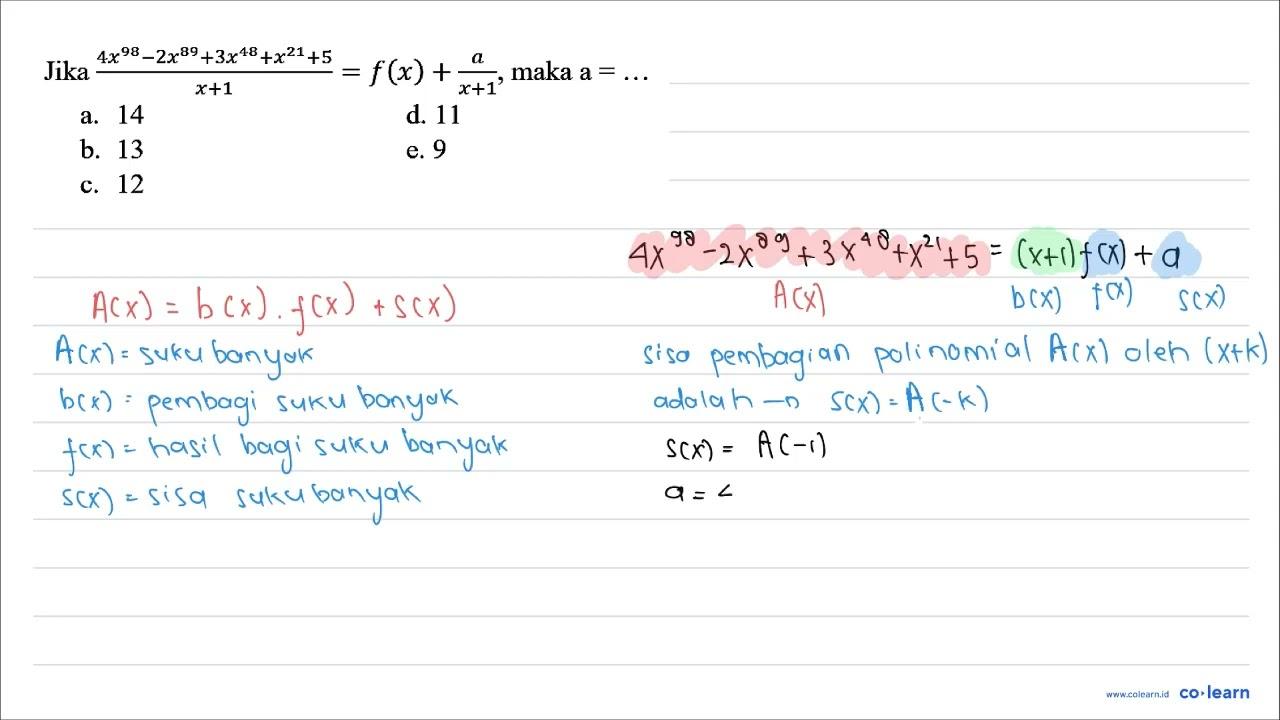 Jika \frac{4x^{98}-2x^{89}+3x^{48}+x^{21}+5}{x+1} = f(x) + \frac{a}{x+1}, maka a = …
a. 14
d. 11
b. 13
e. 9
c. 12
4x^{98} - 2x^{89} + 3x^{48} + x^{21} + 5 = (x+1) f(x) + a
A(x) b(x) f(x) s(x)
A(x) = b(x) . f(x) + s(x)
A(x) = suku banyak
b(x) = pembagi suku banyak
f(x) = hasil bagi suku banyak
s(x) = sisa suku banyak
sisa pembagian polinomial A(x) oleh (x+k)
adalah → s(x) = A(-k)
s(x) = A(-1)
a =
www.colearn.id co·learn